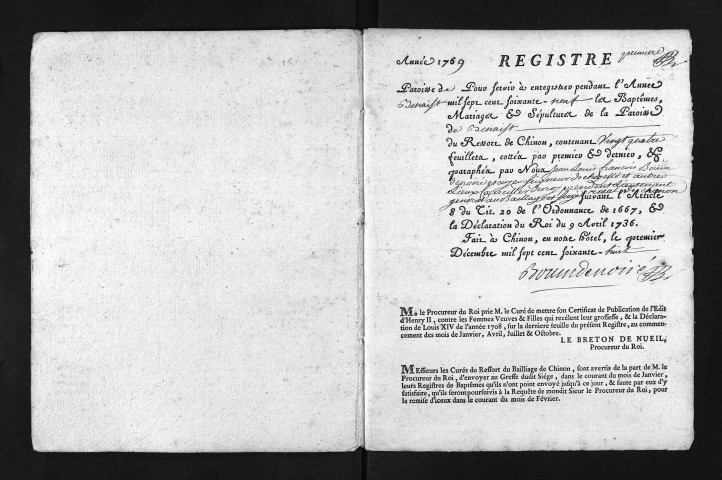 Année 1769 REGISTRE première
Paroisse de Pour servir à enregistrer pendant l'Année
mil sept cent soixante-neuf les Baptêmes,
Mariages & Sépultures de la Paroisse
de
du Ressort de Chinon, contenant Vingt quatre
feuillets, cottés par premier & dernier, &
paraphés par Nous Jean Louis françois Bouin
denoiré escuyer Seigneur de et autres
Lieux Conseiller du roy president Lieutenant
general au Bailliage Chinon suivant l'Article
8 du Tit. 20 de l'Ordonnance de 1667, &
la Déclaration du Roi du 9 Avril 1736.
Fait à Chinon, en notre hôtel, le premier
Décembre mil sept cent soixante-huit
Bouindenoiré
M. le Procureur du Roi prie M. le Curé de mettre son Certificat de Publication de l'Edit
d'Henry II, contre les Femmes Veuves & Filles qui recélent leur grossesse, & la Déclara-
tion de Louis XIV de l'année 1708, sur la derniere feuille du présent Registre, au commen-
cement des mois de Janvier, Avril, Juillet & Octobre.
LE BRETON DE NUEIL,
Procureur du Roi.
Messieurs les Curés du Ressort du Bailliage de Chinon, sont avertis de la part de M. le
Procureur du Roi, d'envoyer au Greffe dudit Siége, dans le courant du mois de Janvier,
leurs Registres de Baptêmes qu'ils n'ont point envoyé jusqu'à ce jour, & faute par eux d'y
satisfaire, qu'ils seront poursuivis à la Requête de mondit Sieur le Procureur du Roi, pour
la remise d'iceux dans le courant du mois de Février.